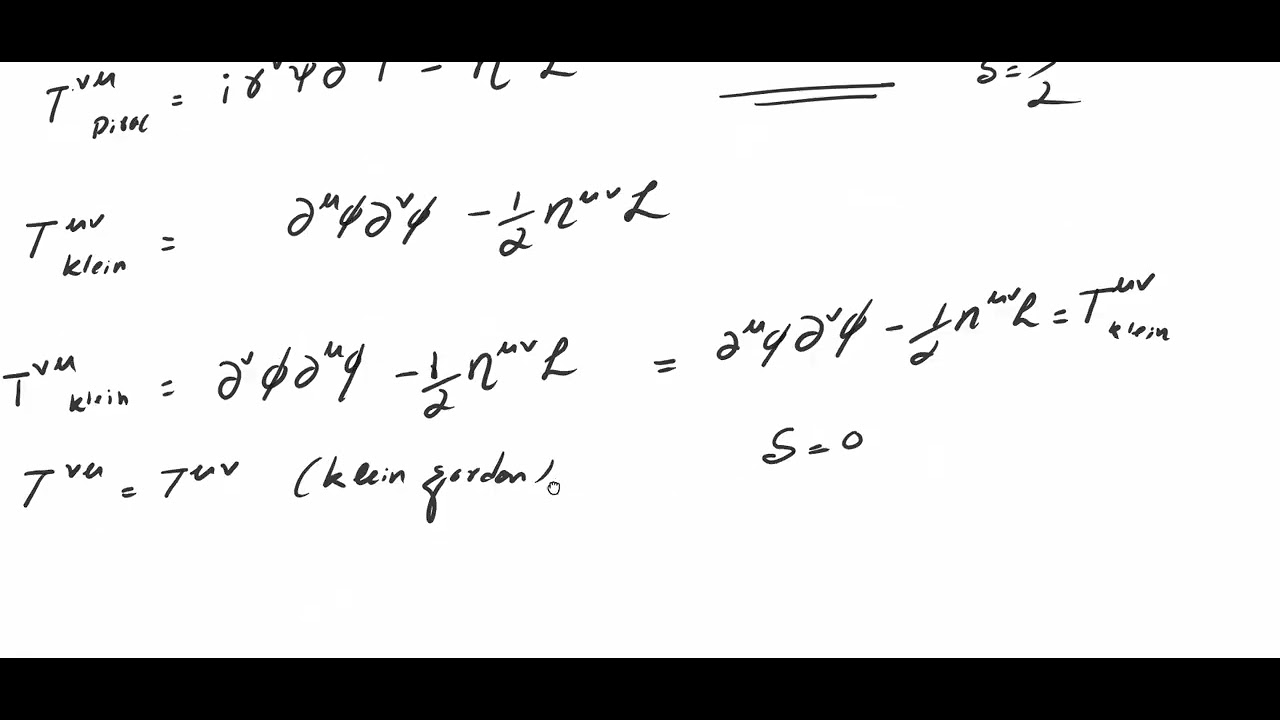 T^{νμ}_{Dirac} = i γ^ν ψ ∂ − η L
S = /2
T^{μν}_{klein} = ∂^μ φ ∂^ν φ − 1/2 η^{μν} L
T^{νμ}_{klein} = ∂^ν φ ∂^μ φ − 1/2 η^{μν} L = ∂^μ φ ∂^ν φ − 1/2 η^{μν} L = T^{μν}_{klein}
S = 0
T^{νμ} = T^{μν} (klein gordon)